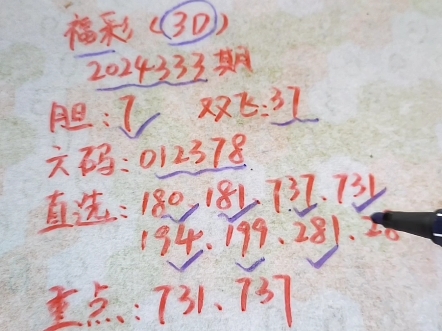 福彩(3D)
2024333期
胆:7 双飞:37
六码:012378
直选:180.181.737.731
194.199.281.28
重点:731.737